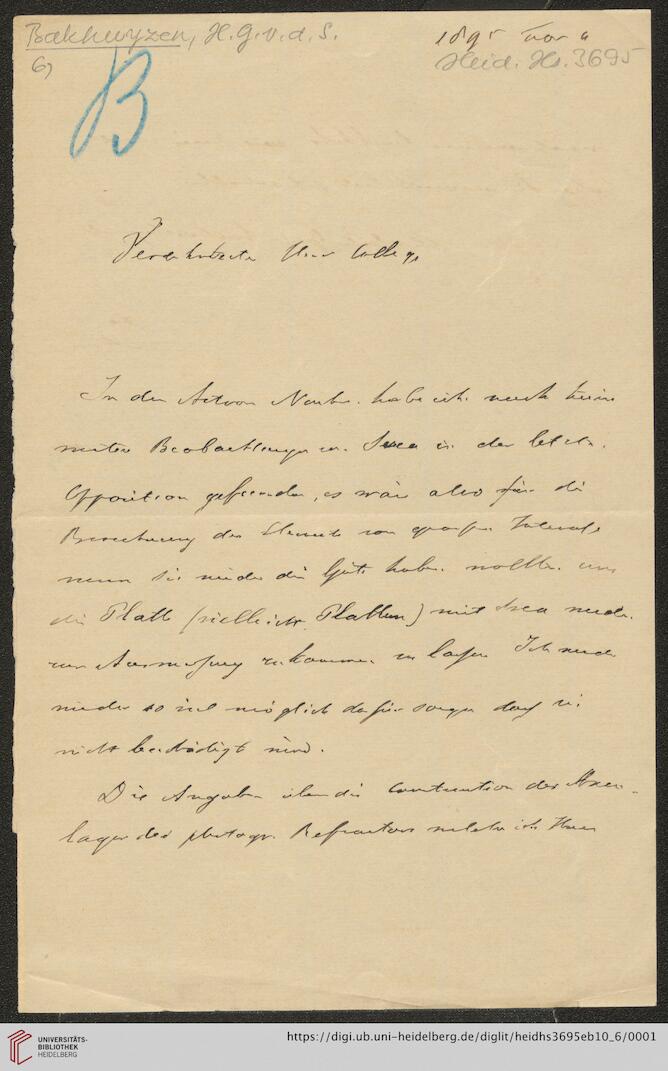 Bakhuyzen, H.G.v.d.S.
6)
1895
Heid. Hs. 3695
B
Verehrtester Herr College
In den Astron Nachr. habe ich noch keine
weitere Beobachtungen von Svea in der letzten
Opposition gefunden, es wäre also für die
Berechnung der Elemente von grossem Interesse
wenn Sie wieder die Güte haben wollten uns
die Platte (vielleicht Platten) mit Svea wieder
zur Ausmessung zukommen zu lassen Ich werde
wieder so viel möglich dafür sorgen dass sie
nicht beschädigt wird.
Die Angaben über die Construction des Axen-
lager des photogr. Refractors welche ich Ihnen
UNIVERSITÄTS-
BIBLIOTHEK
HEIDELBERG
https://digi.ub.uni-heidelberg.de/diglit/heidhs3695eb10_6/0001